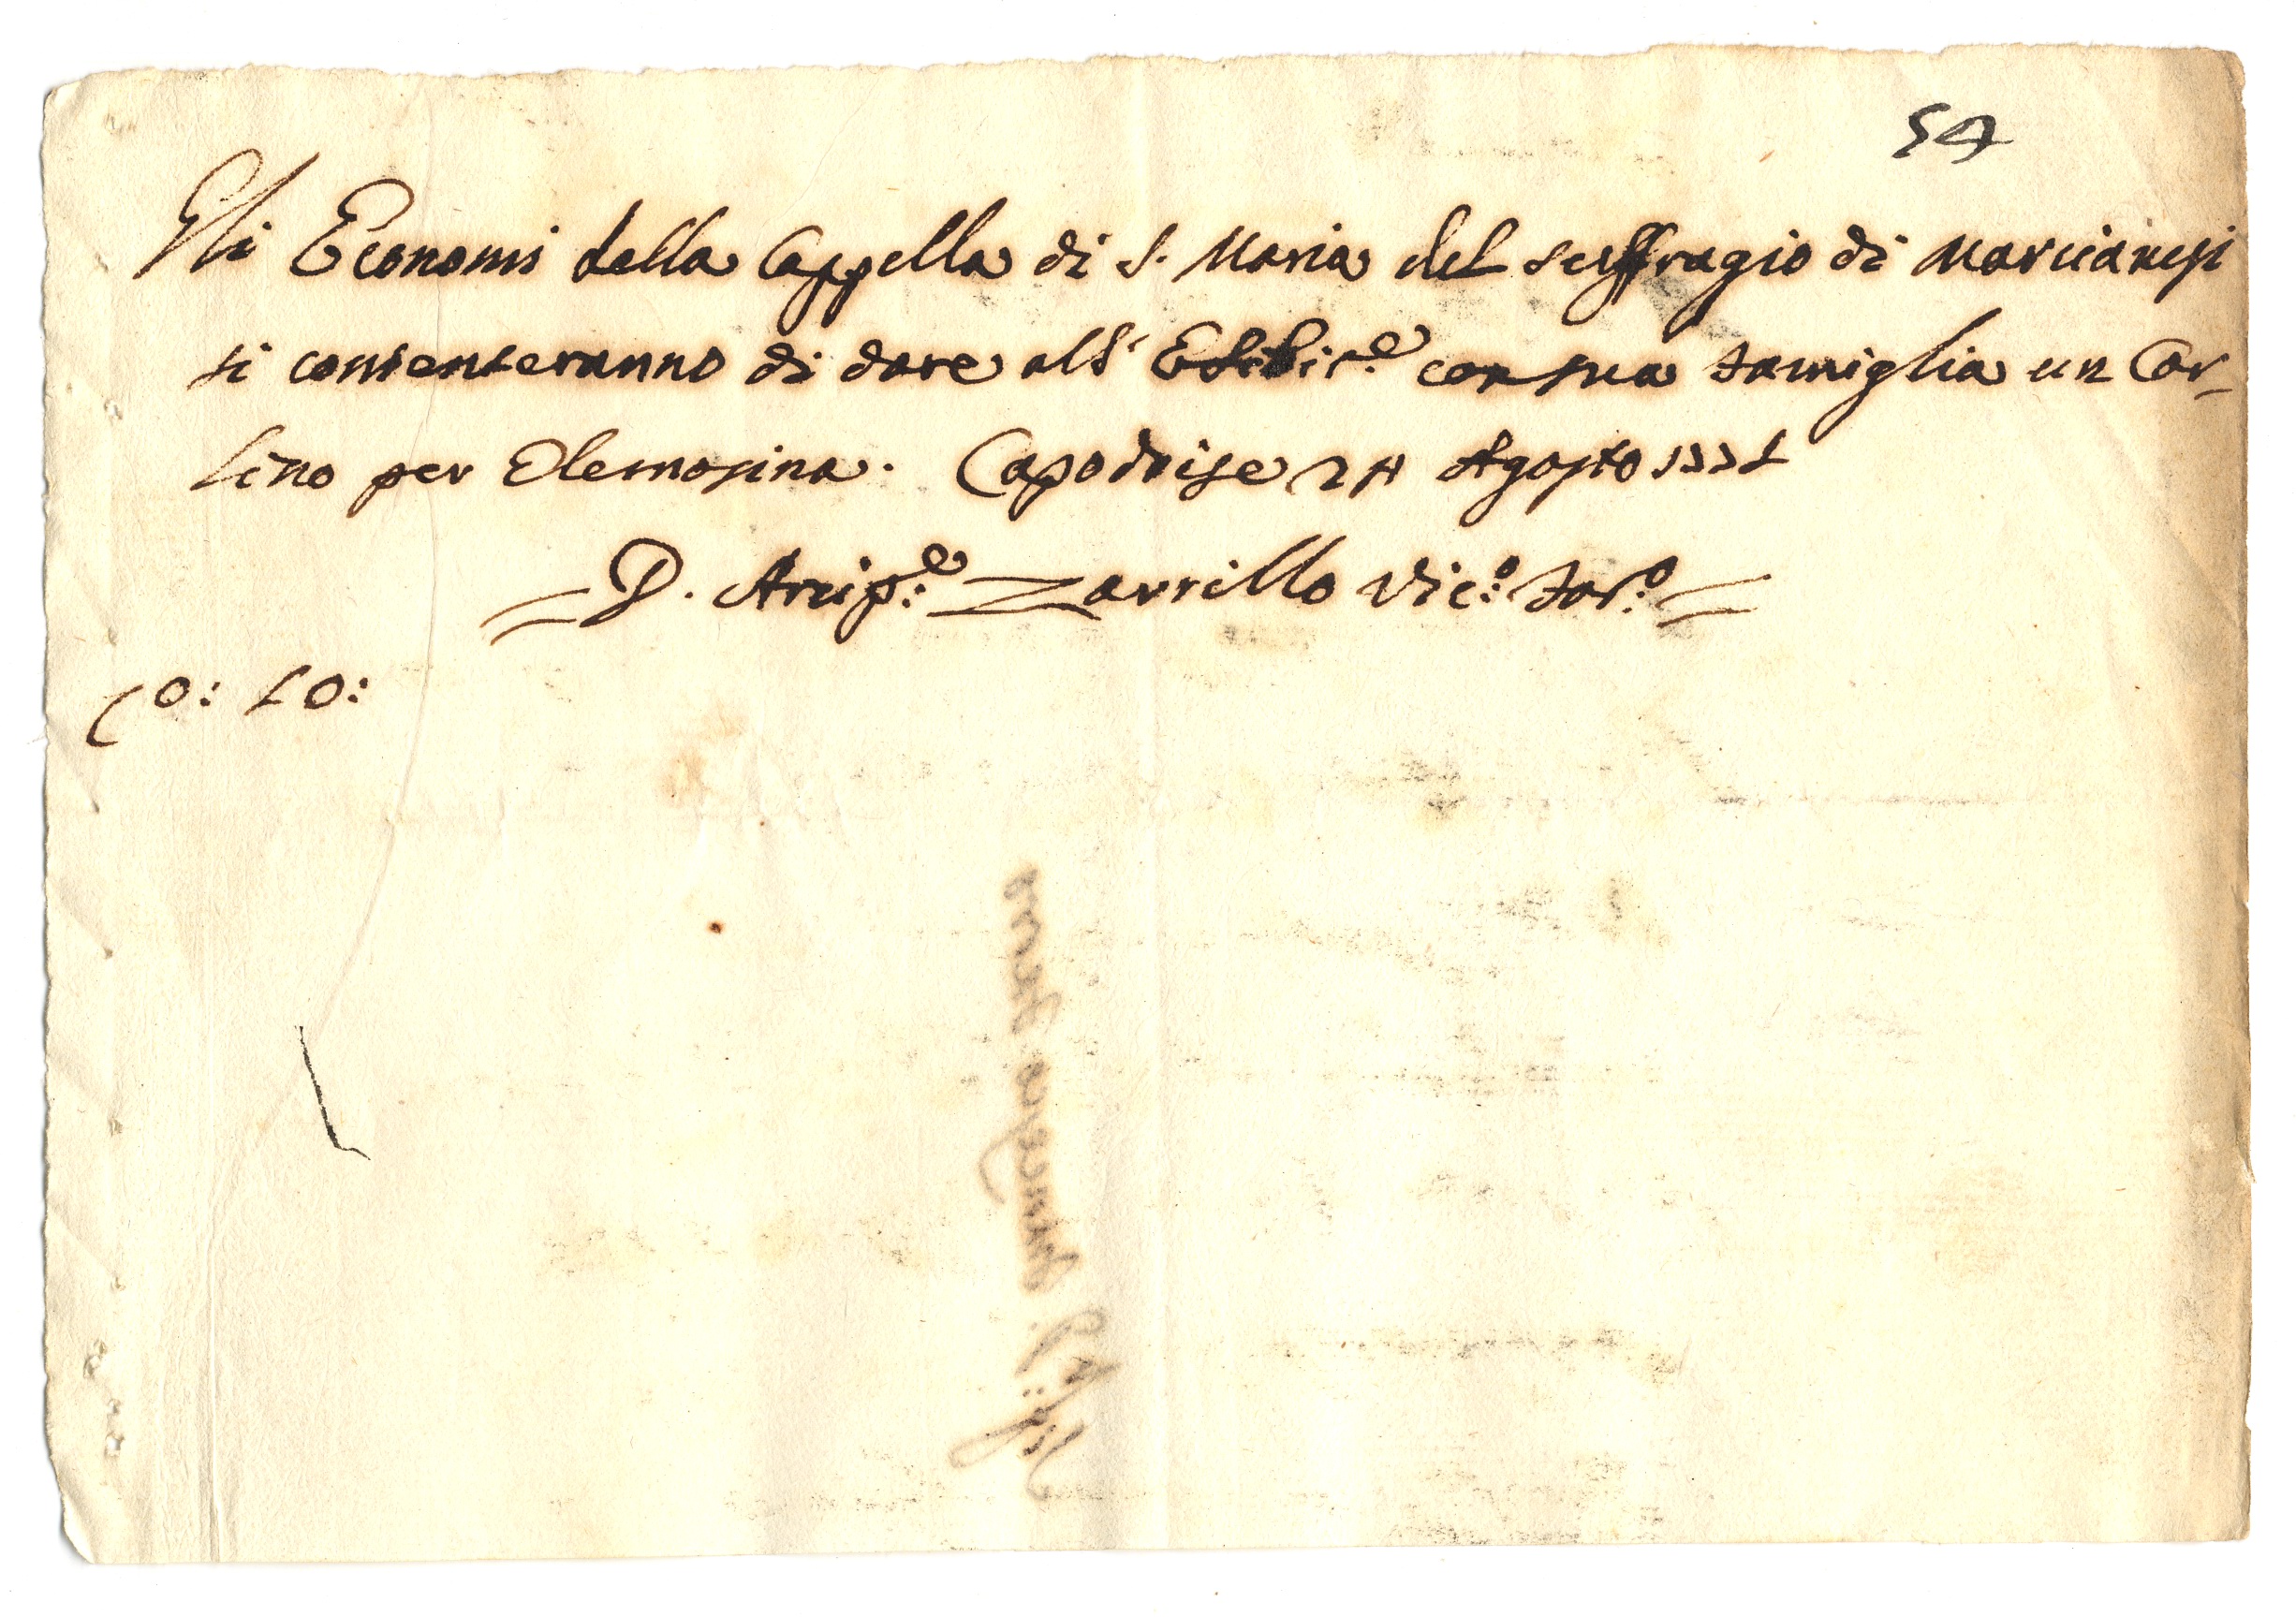 54
Gli Economi della Cappella di S. Maria del suffragio di Marcianesi
si contenteranno di dare all' Esibit.e con sua famiglia un Car-
lino per elemosina. Capodrise 24 Agosto 1771
= D. Arcip.e Zarrillo Vic.o For.o =
0: 10: